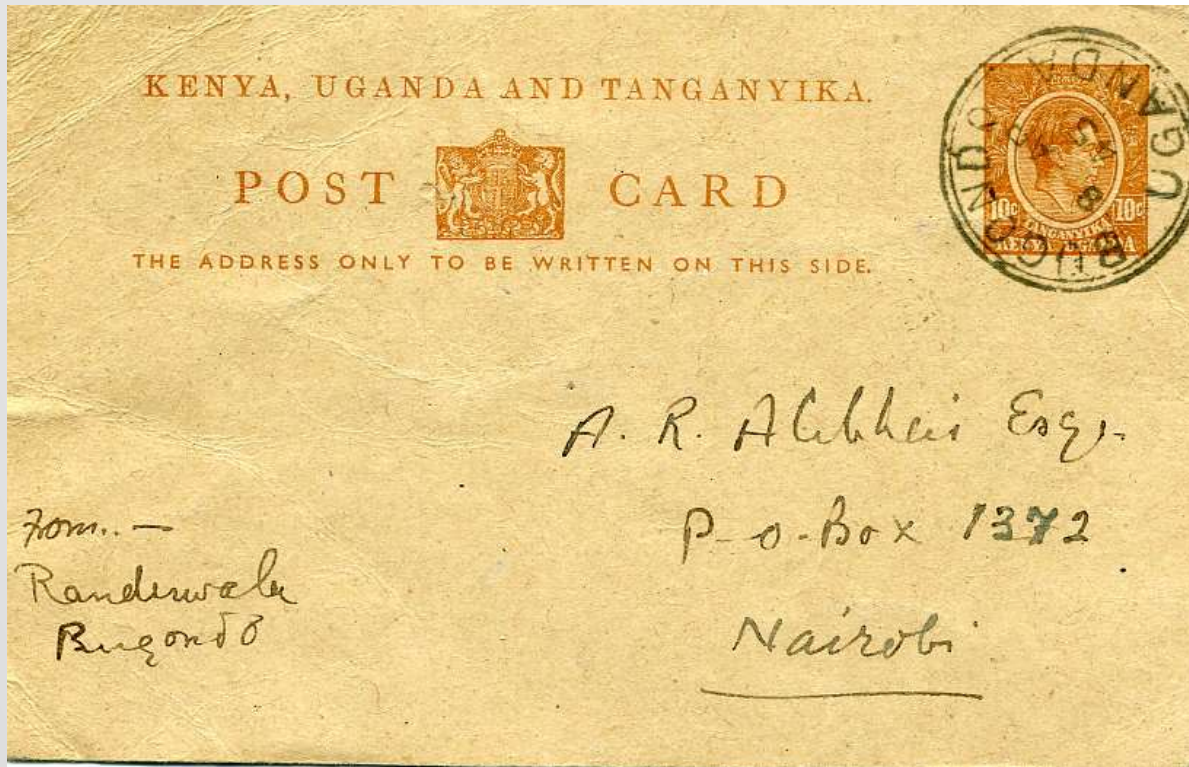 KENYA, UGANDA AND TANGANYIKA.
POST CARD
THE ADDRESS ONLY TO BE WRITTEN ON THIS SIDE.
10c 10c
TANGANYIKA
KENYA UGANDA
BUGONDO
UGANDA
A. R. Alibhai Esq.
P-o-Box 1372
Nairobi
From..—
Randerwala
Bugondo